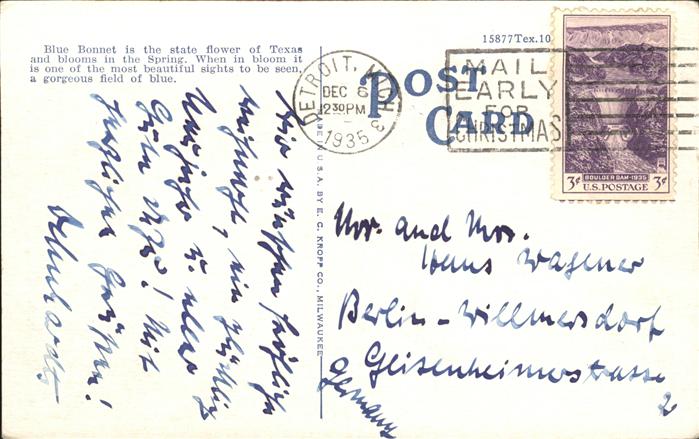 Blue Bonnet is the state flower of Texas
and blooms in the Spring. When in bloom it
is one of the most beautiful sights to be seen,
a gorgeous field of blue.
15877Tex.10
POST
CARD
DETROIT, MICH
DEC 6
12 30 PM
1935
8
MAIL
EARLY
FOR
CHRISTMAS
BOULDER DAM-1935
3¢ U.S. POSTAGE 3¢
MADE IN U.S.A. BY E. C. KROPP CO., MILWAUKEE
Wir wünschen fröhliche
Weihnacht, ein glückliches
Neujahr u. alles
Gute
Mit
herzlichen Grüßen!
Mr. and Mrs.
Hans Wagener
Berlin - Willmersdorf
Geisenheimerstrasse
2
Germany